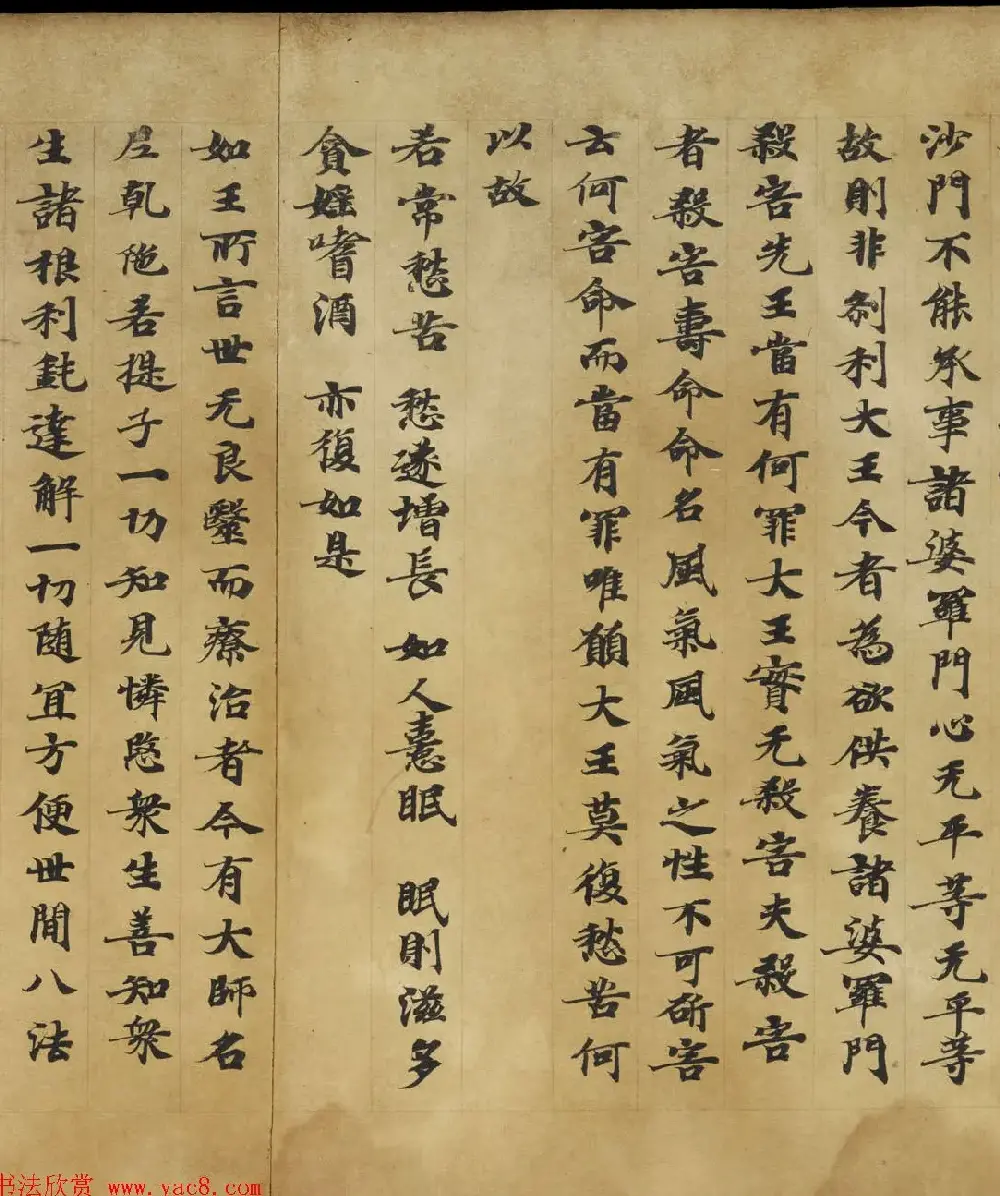 沙門不能承事諸婆羅門心无平等无平等
故則非刹利大王今者為欲供養諸婆羅門
殺害先王當有何罪大王實无殺害夫殺害
者殺害壽命命名風氣風氣之性不可斫害
云何害命而當有罪唯願大王莫復愁苦何
以故
若常愁苦 愁遂增長 如人憙眠 眠則滋多
貪婬嗜酒 亦復如是
如王所言世无良醫而療治者今有大師名
尼乹陁若提子一切知見憐愍衆生善知衆
生諸根利鈍達解一切随宜方便世間八法
书法欣赏 www.yac8.com